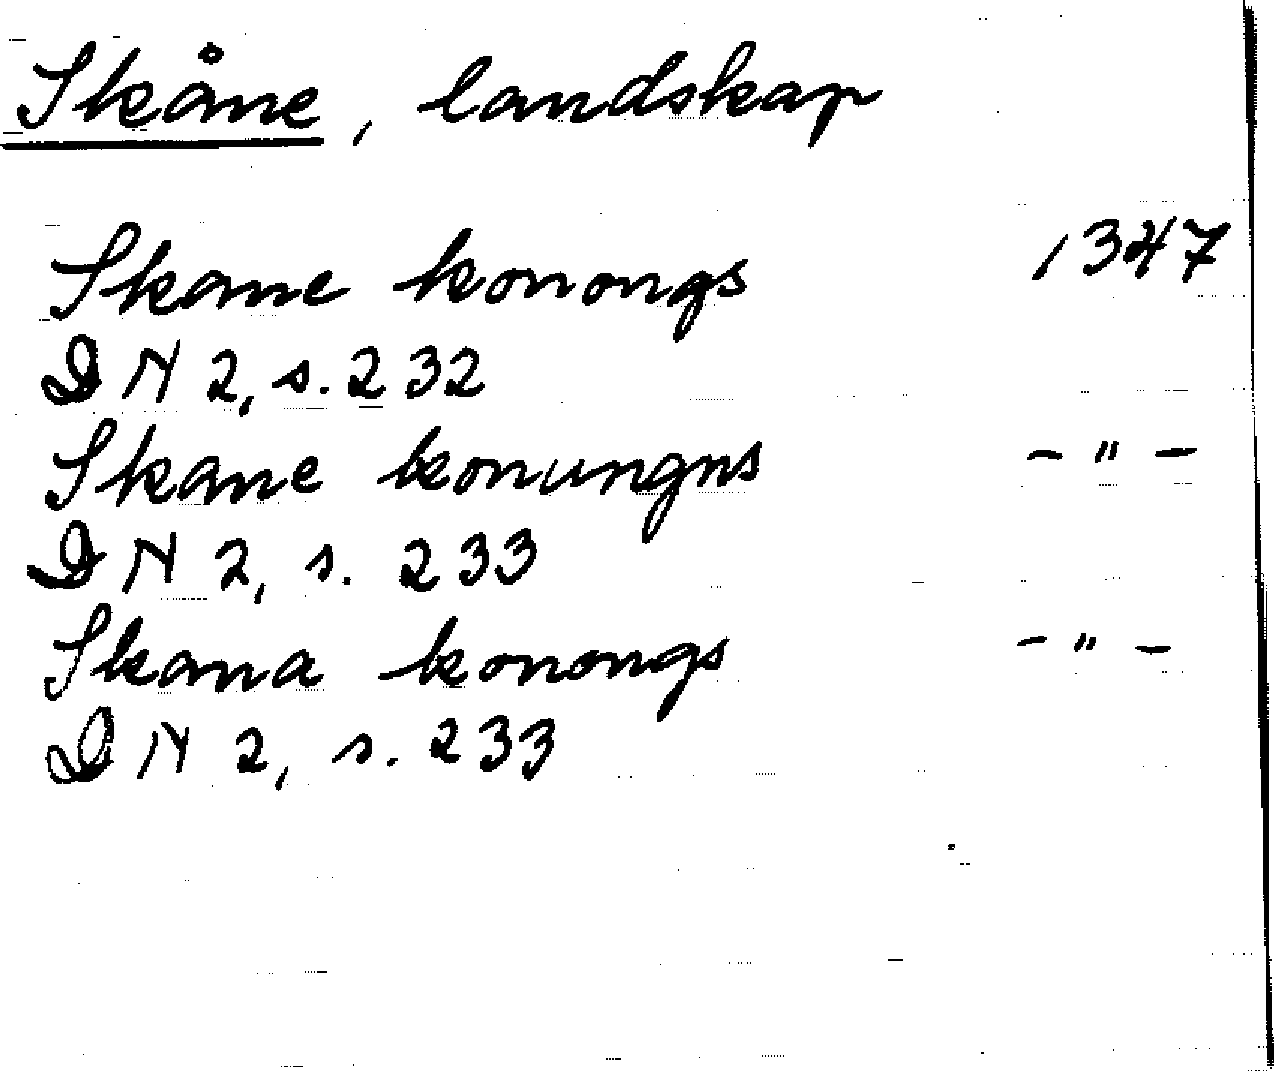 Skåne, landskap
Skane konongs 1347
DN 2, s. 232
Skane konungns - " -
DN 2, s. 233
Skana konongs - " -
DN 2, s. 233